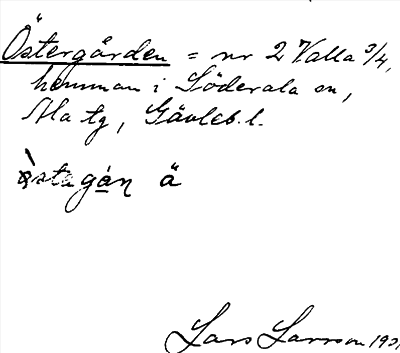 Östergården = nr 2 Valla 3/4,
hemman i Söderala sn,
Ala tg, Gävleb. l.
östagá̱n ä
Lars Larsson 193